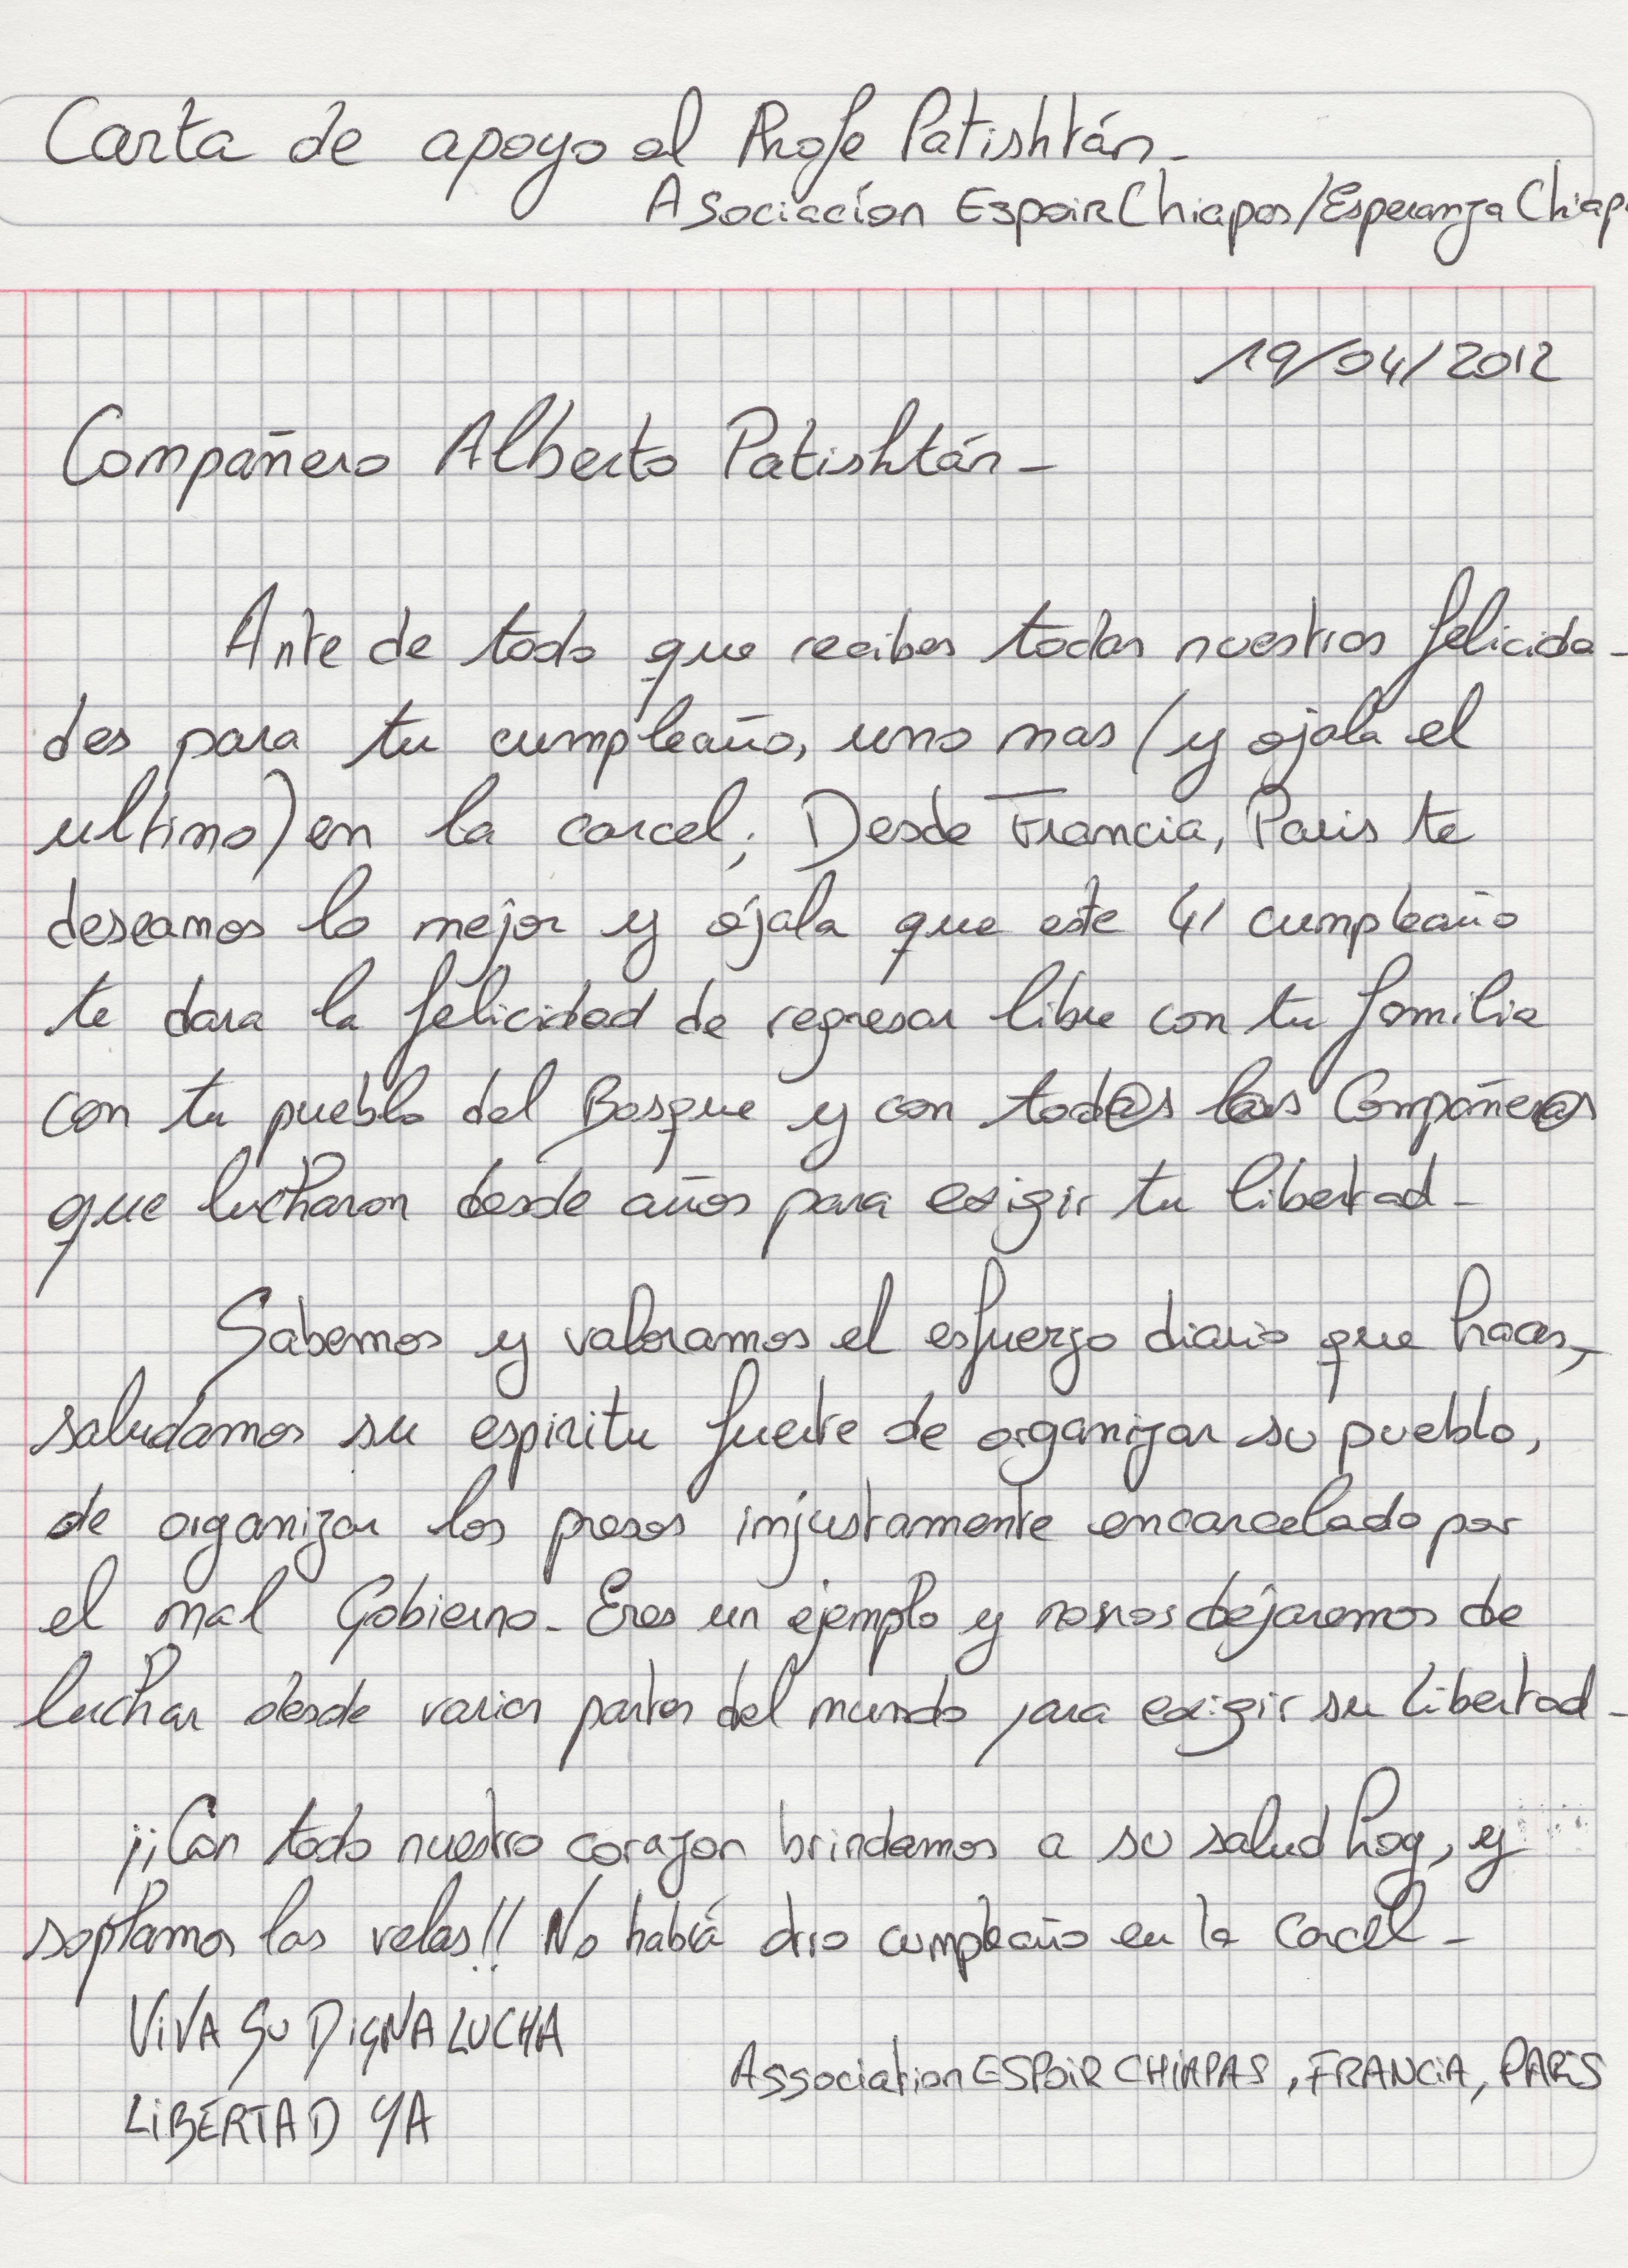 Carta de apoyo al Profe Patishtán_
Asociación Espoir Chiapas/Esperanza Chiap
19/04/2012
Compañero Alberto Patishtán_
Ante de todo que recibes todas nuestras felicida_
des para tu cumpleaño, uno mas (y ojala el
ultimo) en la carcel; Desde Francia, Paris te
deseamos lo mejor y ójala que este 41 cumpleaño
te dara la felicidad de regresar libre con tu familia
con tu pueblo del Bosque y con tod@s l@s Compañer@s
que lucharon desde años para exigir tu libertad_
Sabemos y valoramos el esfuerzo diario que haces,
saludamos su espiritu fuerte de organizar su pueblo,
de organizar los presos injustamente encarcelado por
el mal Gobierno_ Eres un ejemplo y no nos dejaremos de
luchar desde varias partes del mundo para exigir su libertad_
¡¡Con todo nuestro corazon brindamos a su salud hoy, y
soplamos las velas!! No habrá otro cumpleaño en la Carcel_
VIVA SU DIGNA LUCHA
LIBERTAD YA
Association ESPOIR CHIAPAS, FRANCIA, PARIS